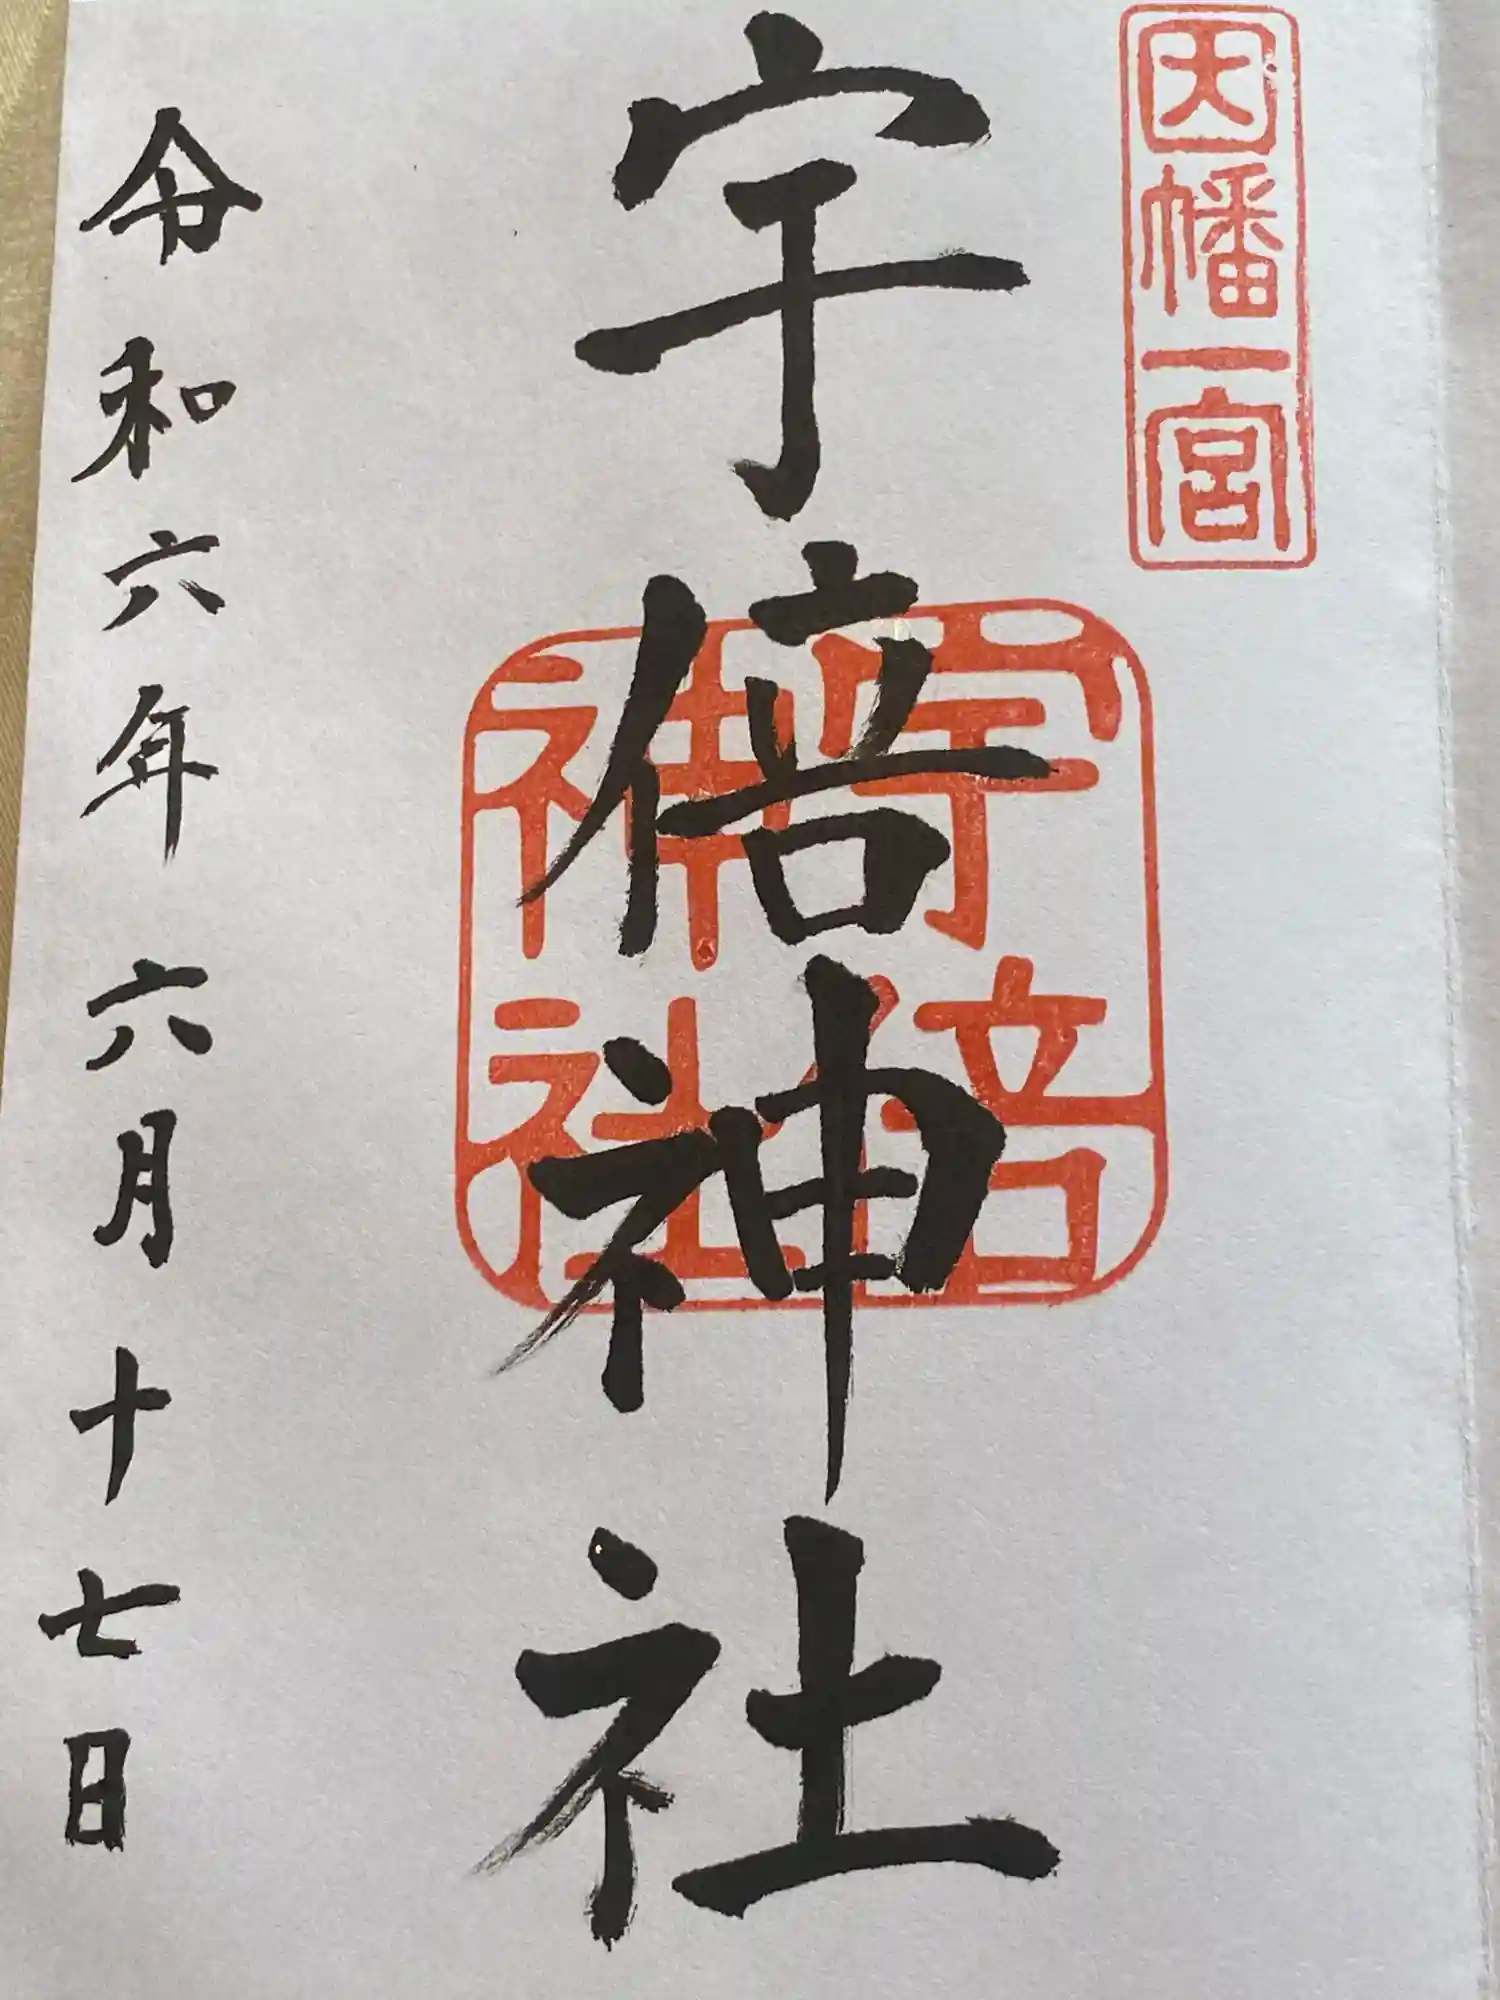 因幡一宮
宇倍神社
宇倍
神社
令和六年六月十七日